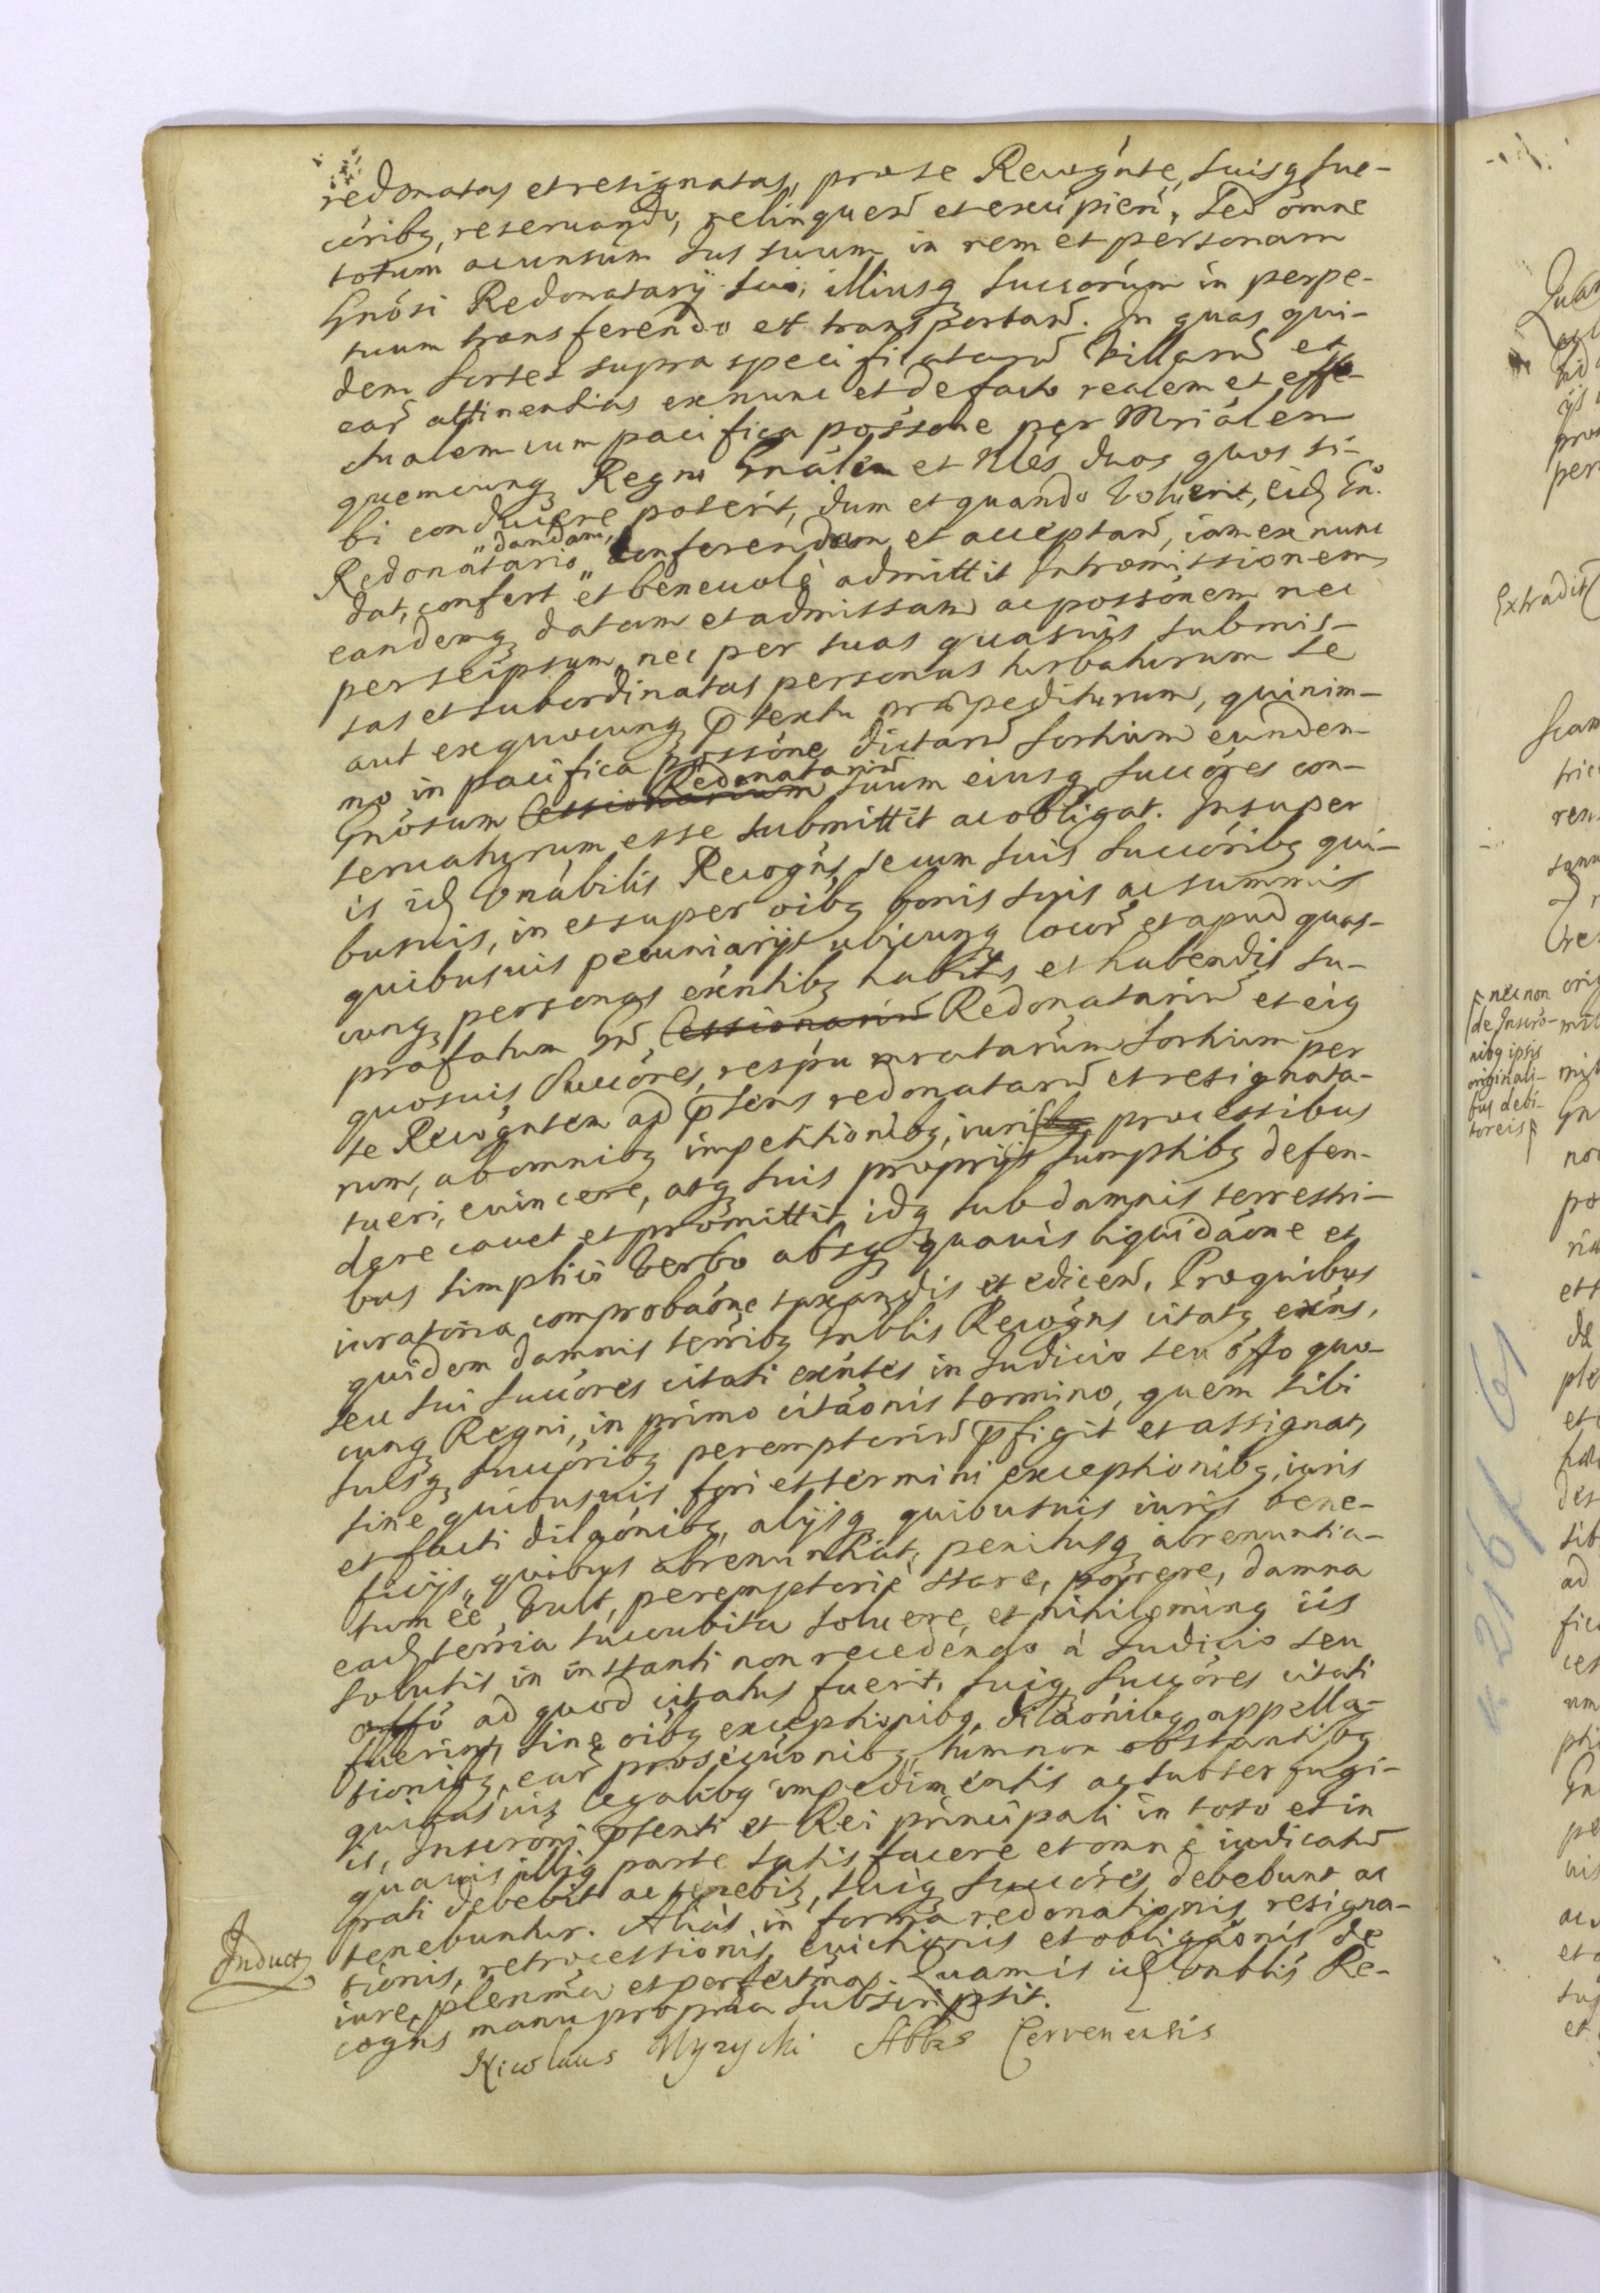 redonatas et resignatas, pro se Recogńte, suisq̨ suc-
córibq̨, reseruando, relinquen̄ et excipien̄, Sed omne
totum ac unsum Ius suum in rem et personam
Gnósi Redonatarÿ sui, illiusq̨ succorúm in perpe-
tuum transferendo et transportan̄. In quas qui-
dem sortes supra specificatarū Villarū et
ear̄ attinentias ex nunc et de facto realem et effe-
ctualem cum pacifica possóne per Mriálem
quemcunq̨ Regni Gnálem et Nles duos quos si-
bi conducere poterit, dum et quando Voluerit, eid̨ Gn̄.
Redonatario „dandam, conferendam et acceptan̄, iam ex nunc
dat, confert et beneuolè admittit Intromissionem
eandemq̨ datam et admissam ac possónem nec
per seipsum, nec per suas quasuis submis-
sas et subordinatas personas turbaturum se
aut exquocunq̨ p̄textu impediturum, quinim-
mo in pacifica possóne dictarū sortium eundem
Gnósum Cessionarium Redonatariū suum eiusq̨ succóres con-
seruaturum esse submittit ac obligat. Insuper
is id̨ Vnábilis Recogńs, secum suis succóribq̨ qui-
busuis, in et super oibq̨ bonis suis ac summis
quibusuis pecuniarÿs ubicunq̨ locor̄ et apud quas-
cunq̨ personas exéntibq̨ habitis et habendis su-
prafatum Gn̄ Cessionariū Redonatariū et eiq̨
quosuis Succóres, respéu mratarúm sortium per
se Recogńtem ad p̄sens redonatarū et resignata-
rum, ab omnibq̨ impetitionibq̨, iuris processibus
tueri, euincere, atq̨ suis proprÿs sumptibq̨ defen-
dere cauet et promittit, idq̨ sub damnis terrestri-
bus simplici Verbo absq̨ quauis liquidáone et
iuratoria comprobáone taxandis et edicen̄. Pro quibus
quidem damnis terribq̨ Vnblis Recogńs citatq̨ exéns,
seu sui succóres citati exéntes in Iudicio seu offo quo-
cunq̨ Regni, in primo citáonis termino, quem sibi
suisq̨ succóribq̨ peremptoriū p̄figit et assignat,
sine quibusuis fori et termini exceptionibq̨, iuris
et facti dilaónibq̨, alÿsq̨ quibusuis iuris bene-
ficÿs, quibus abrenuntiat, penitusq̨ abrenuntia-
tum ee Vult, peremptoriè stare, parere, damna
ead̨ terria succubita soluere, et nihilominq̨ iis
solutis in instanti non recedendo à Iudicio seu
offo ad quod citatus fuerit, suiq̨ succóres citati
fuerint, sine oibq̨ exceptionibq̨, dilaónibq̨ appella-
tionibq̨, ear̄ prosecúonibq̨, tum non obstantibq̨
quibusuis legalibq̨ impedimentis ac subterfugi-
is, Inscrōni p̄senti et Rei principali in toto et in
quauis illiq̨ parte satisfacere et omne iudicatū
prati debebit ac tenebit, suiq̨ succóres debebunt ac
tenebuntur. Aliàs in forma redonationis, resigna-
tionis, retrocessionis, euictionis et obligáonis de
iure plenma et perfectma. Quam is id̨ Vnblis Re-
cogńs manu propria subscripsit.
Nicolaus Wyzycki Abbas Cervenensis
Induct.
Extradit
nec non
de Inscró-
nibq̨ ipsis
originali-
bus debi-
toreis